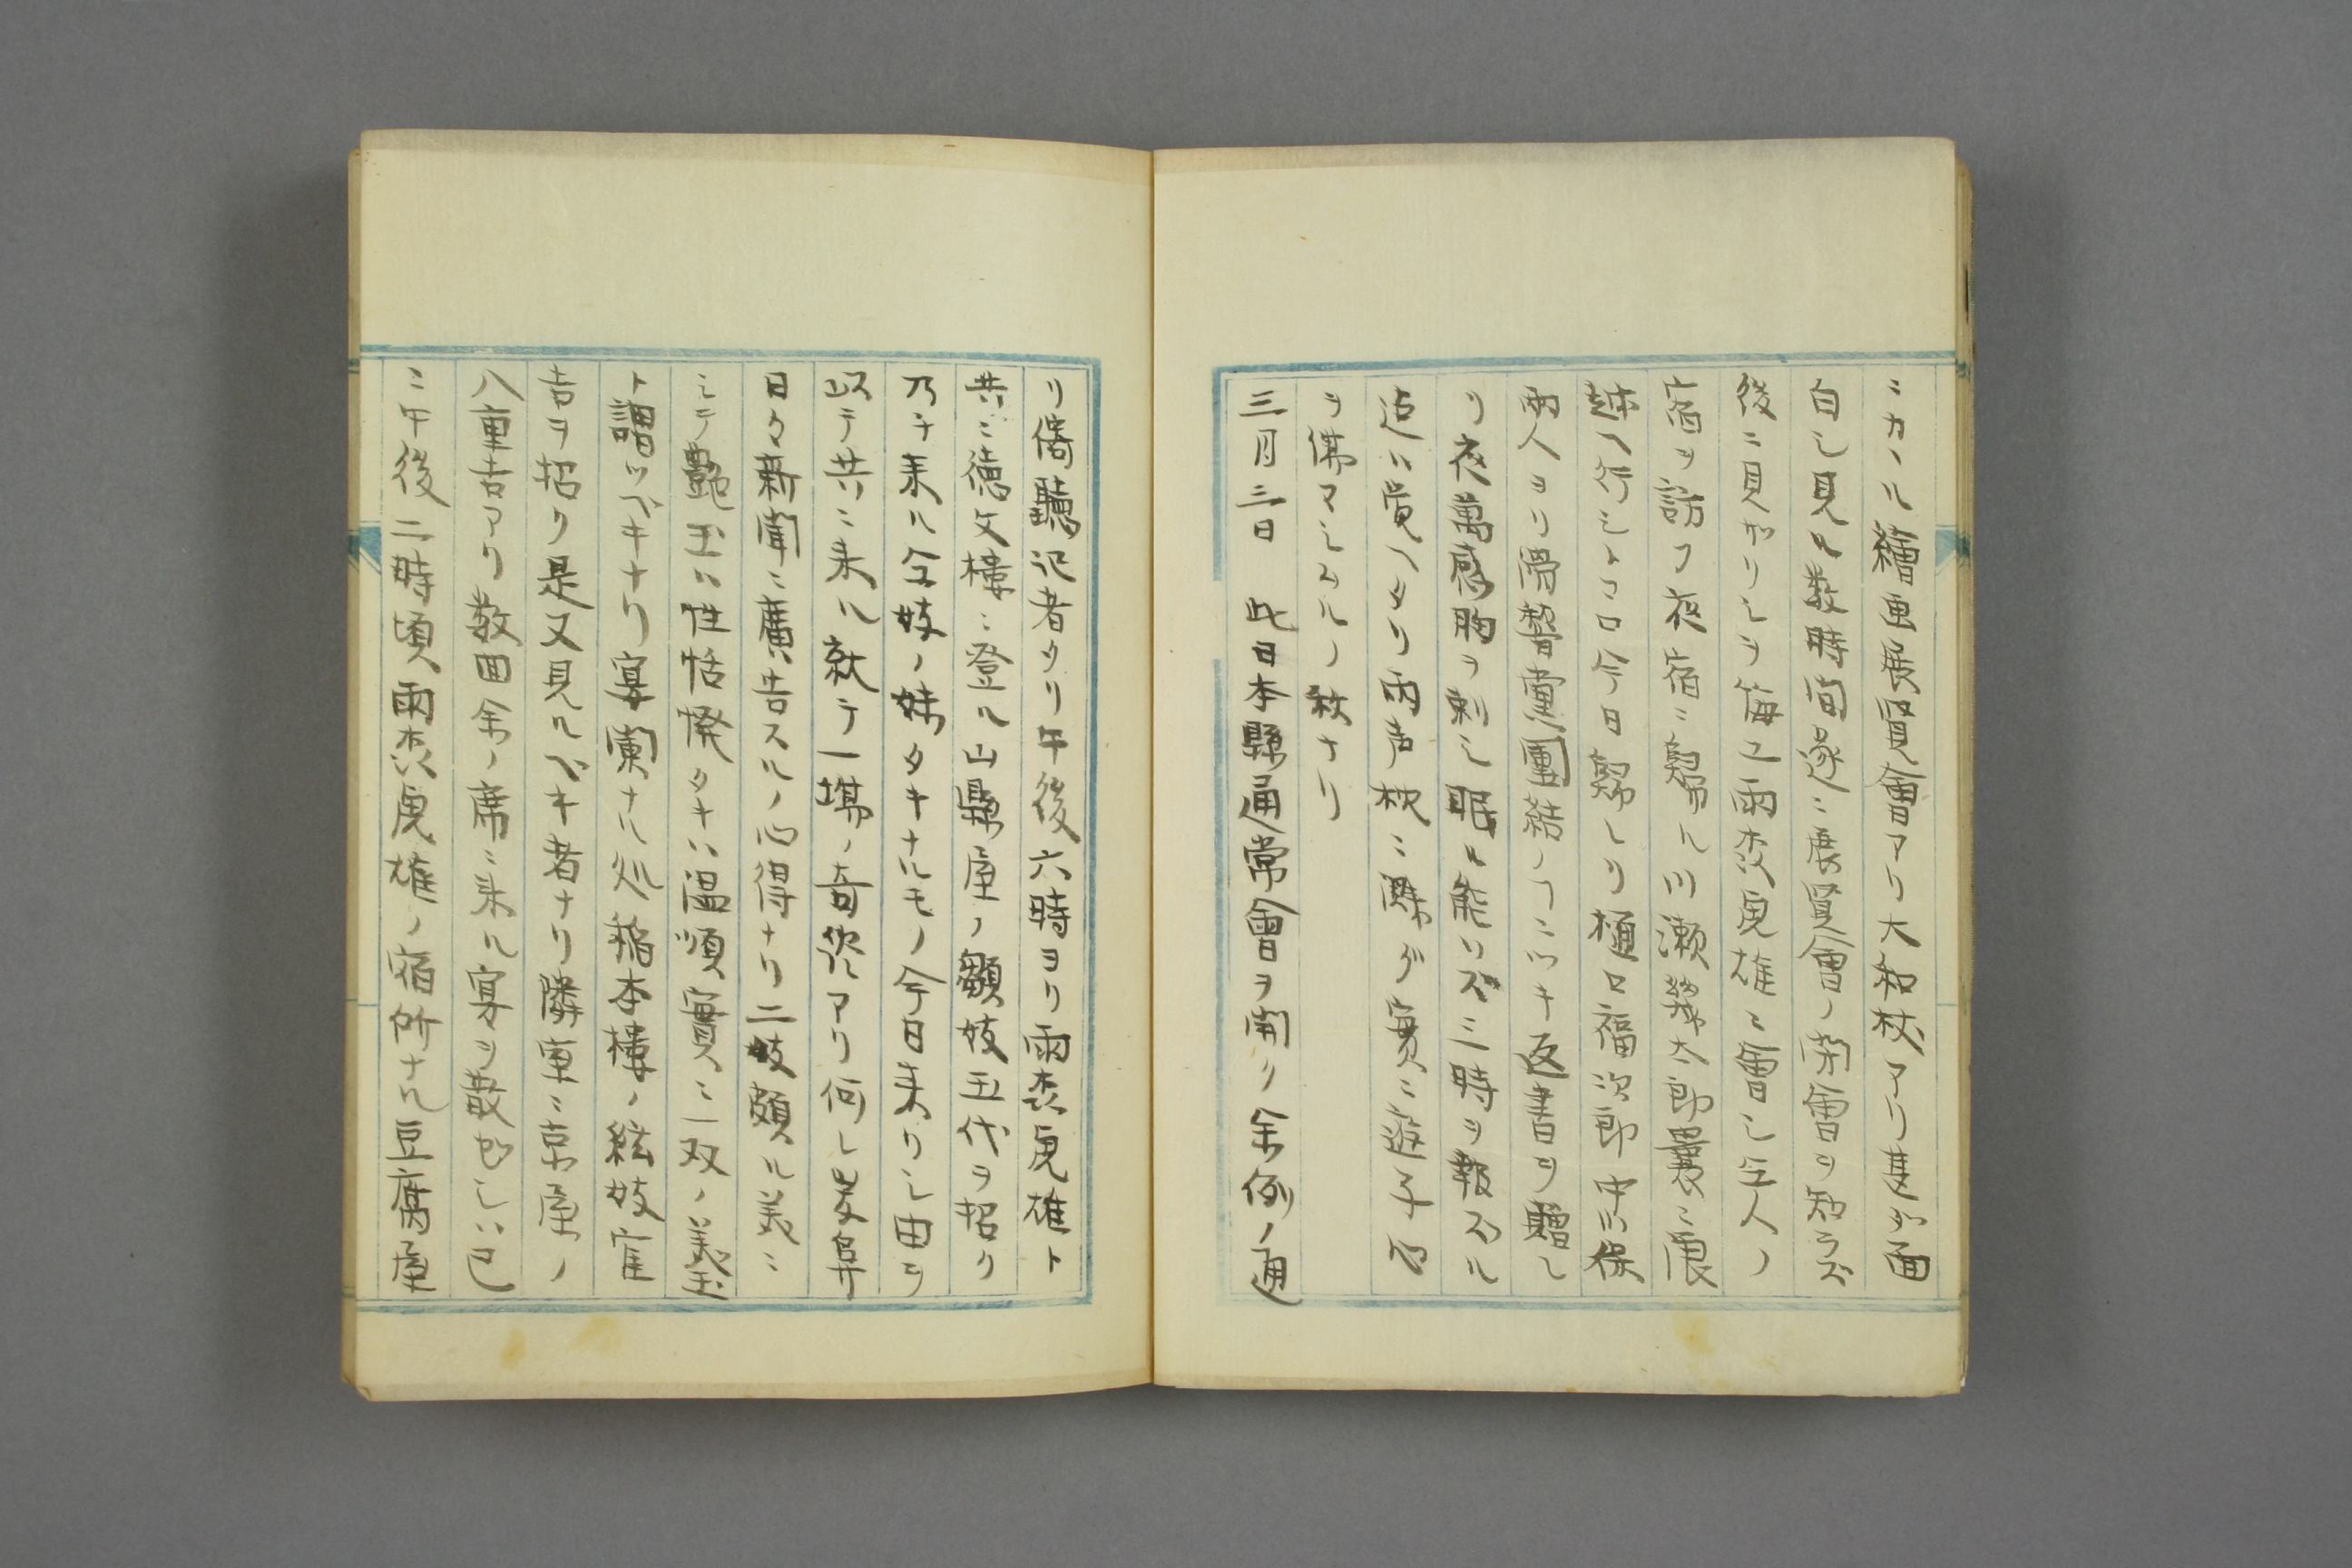 ニカヽル繪画展覧會アリ大和杖アリ甚ダ面
白シ見ル数時间遂ニ展覧會ノ閉會ヲ知ラズ
後ニ見ザリシヲ悔ユ雨森虎雄ニ會シ仝人ノ
宿ヲ訪フ夜宿ニ歸ル川瀬 太郎曩ニ濃
越ヘ行シトコロ今日歸レリ樋口福次郎中川保
兩人ヨリ 聲黨團結ノヿニツキ返書ヲ贈レ
リ夜萬感胸ヲ刺シ眠ル能ハズ三時ヲ報ズル
迄ハ覚ヘタリ雨声枕ニ 實ニ遊子
ヲ ナリ
三月三日 此日本縣通常會ヲ開ク余例ノ通
リ傍聴記者タリ午後六時ヨリ雨森虎雄ト
共ニ徳文樓ニ登ル山縣屋ノ顰妓五代ヲ招ク
乃チ来ル仝妓ノ妹タキナルモノ今日来リシ由ヲ
以テ共ニ来ル就テ一場ノ奇 アリ何レ岐阜
日々新聞ニ廣告スルノ心得ナリ二妓頗ル美ニ
シテ艶玉ハ性恬 タキハ温順實ニ一双ノ美玉
ト謂ツベキナリ宴闌ナル処稲本樓ノ絃妓
吉ヲ招ク是又見ルベキ者ナリ隣室ニ京屋ノ
八重吉アリ数回余ノ席ニ来ル宴ヲ散ゼシハ已
ニ午後二時頃雨森虎雄ノ宿所ナル豆腐屋